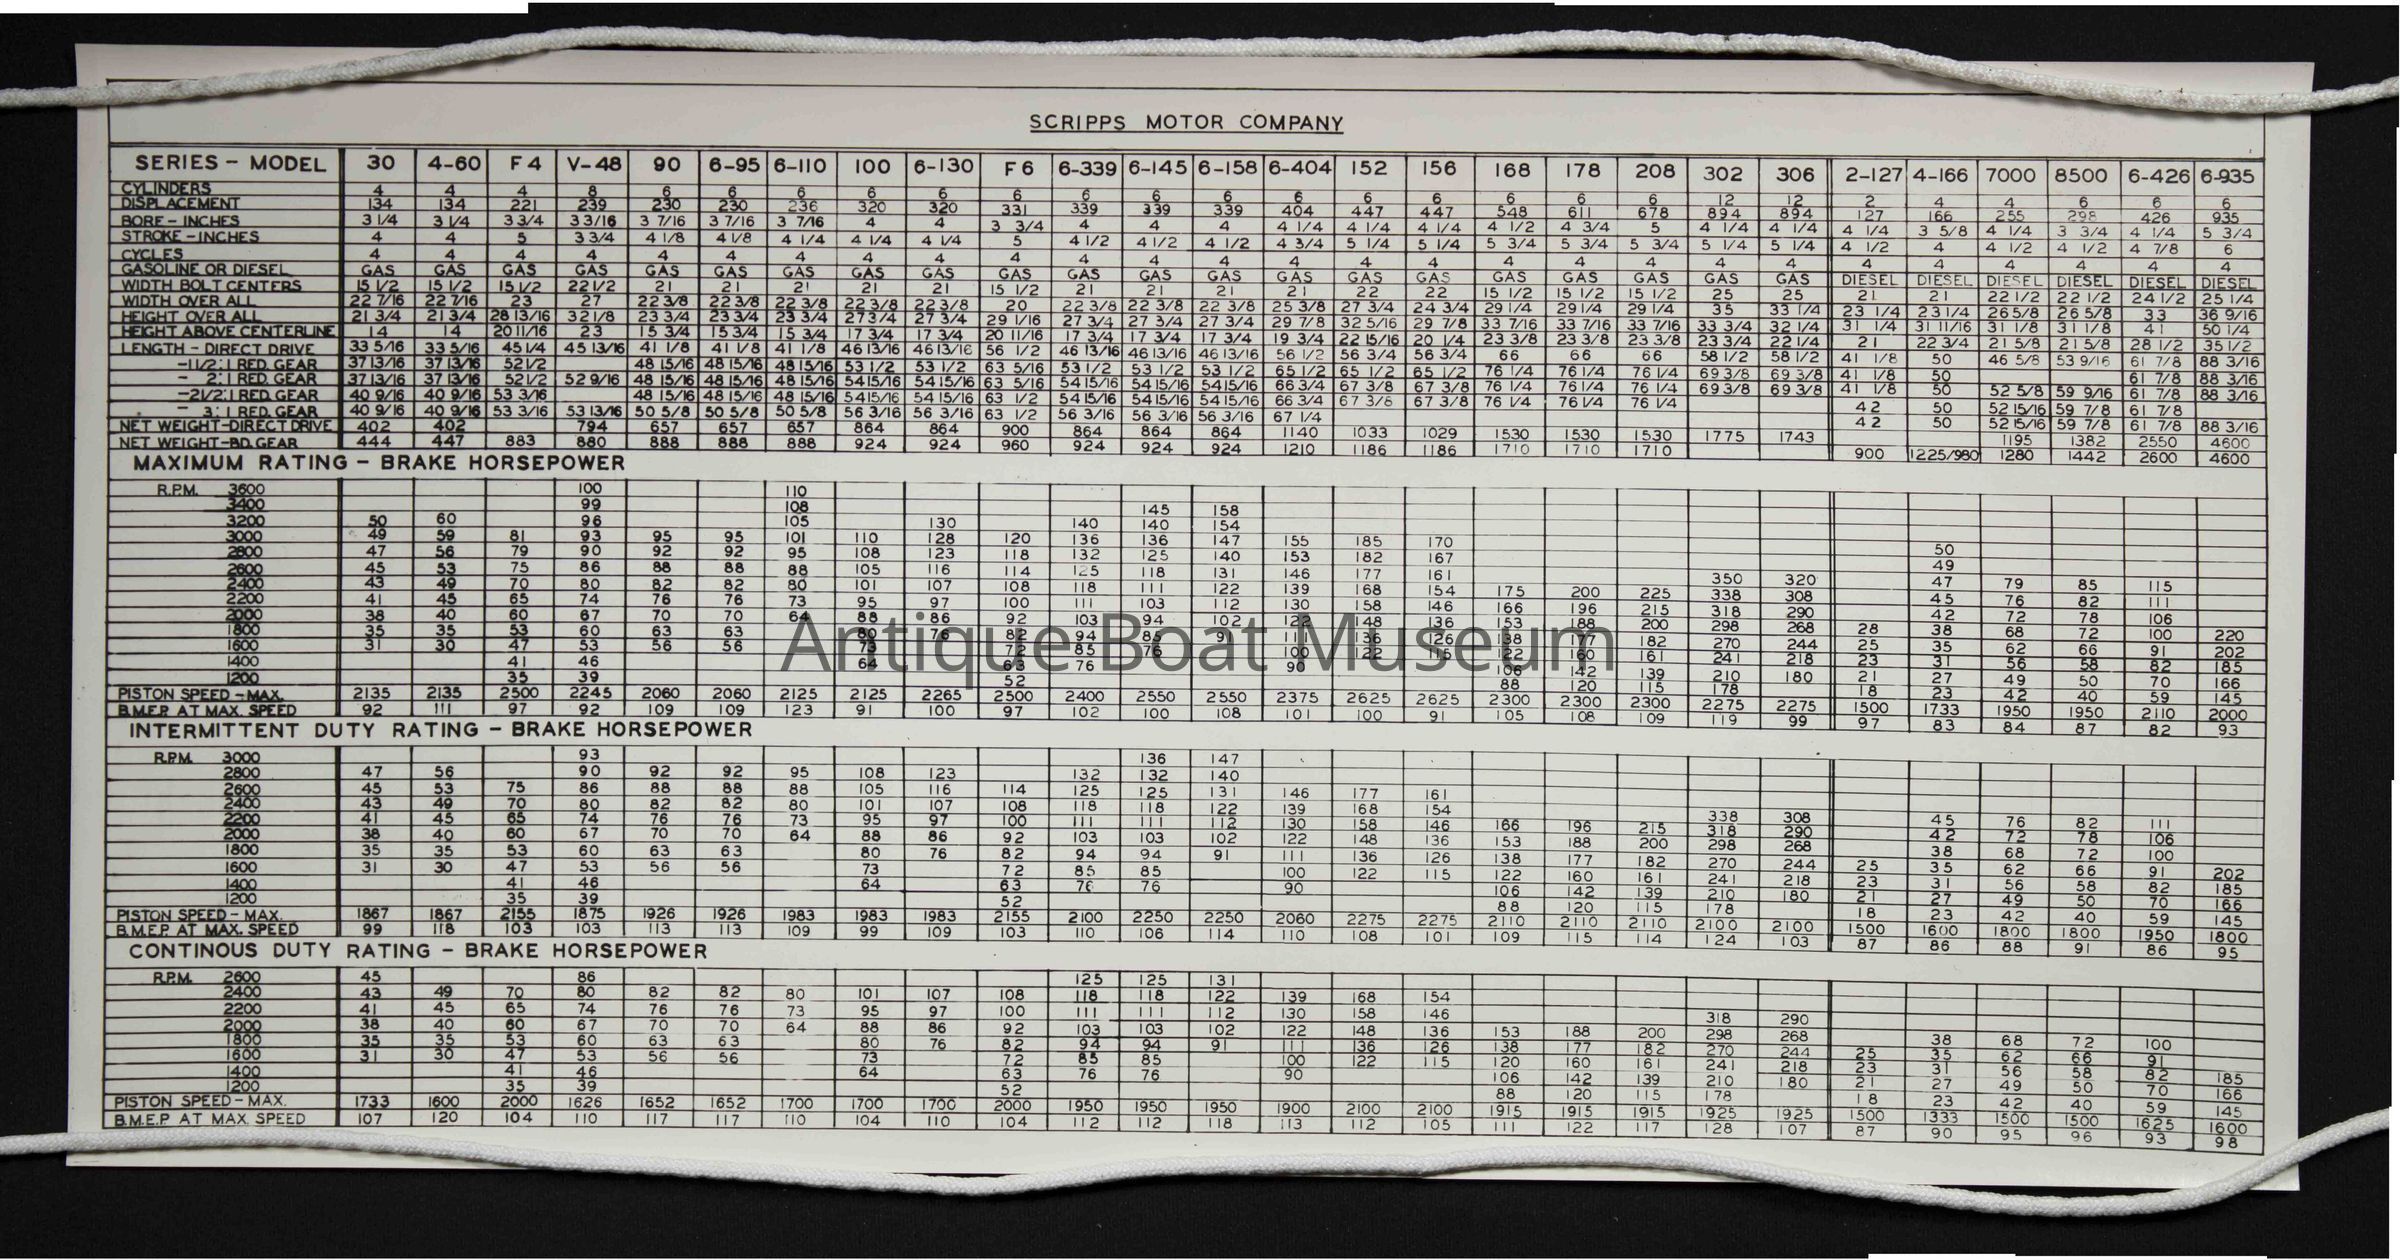 SCRIPPS MOTOR COMPANY
SERIES - MODEL 30 4-60 F4 V-48 90 6-95 6-110 100 6-130 F6 6-339 6-145 6-158 6-404 152 156 168 178 208 302 306 2-127 4-166 7000 8500 6-426 6-935
CYLINDERS 4 4 4 8 6 6 6 6 6 6 6 6 6 6 6 6 6 6 6 12 12 2 4 4 6 6 6
DISPLACEMENT 134 134 221 239 230 230 236 320 320 331 339 339 339 404 447 447 548 611 678 894 894 127 166 255 298 426 935
BORE - INCHES 3 1/4 3 1/4 3 3/4 3 3/16 3 7/16 3 7/16 3 7/16 4 4 3 3/4 4 4 4 4 1/4 4 1/4 4 1/4 4 1/2 4 3/4 5 4 1/4 4 1/4 4 1/4 3 5/8 4 1/4 3 3/4 4 1/4 5 3/4
STROKE - INCHES 4 4 5 3 3/4 4 1/8 4 1/8 4 1/4 4 1/4 4 1/4 5 4 1/2 4 1/2 4 1/2 4 3/4 5 1/4 5 1/4 5 3/4 5 3/4 5 3/4 5 1/4 5 1/4 4 1/2 4 4 1/2 4 1/2 4 7/8 6
CYCLES 4 4 4 4 4 4 4 4 4 4 4 4 4 4 4 4 4 4 4 4 4 4 4 4 4 4 4
GASOLINE OR DIESEL GAS GAS GAS GAS GAS GAS GAS GAS GAS GAS GAS GAS GAS GAS GAS GAS GAS GAS GAS GAS GAS DIESEL DIESEL DIESEL DIESEL DIESEL DIESEL
WIDTH BOLT CENTERS 15 1/2 15 1/2 15 1/2 22 1/2 21 21 21 21 21 15 1/2 21 21 21 21 22 22 15 1/2 15 1/2 15 1/2 25 25 21 21 22 1/2 22 1/2 24 1/2 25 1/4
WIDTH OVER ALL 22 7/16 22 7/16 23 27 22 3/8 22 3/8 22 3/8 22 3/8 22 3/8 20 22 3/8 22 3/8 22 3/8 25 3/8 27 3/4 24 3/4 29 1/4 29 1/4 29 1/4 35 33 1/4 23 1/4 23 1/4 26 5/8 26 5/8 33 36 9/16
HEIGHT OVER ALL 21 3/4 21 3/4 28 13/16 32 1/8 23 3/4 23 3/4 23 3/4 27 3/4 27 3/4 29 1/16 27 3/4 27 3/4 27 3/4 29 7/8 32 5/16 29 7/8 33 7/16 33 7/16 33 7/16 33 3/4 32 1/4 31 1/4 31 11/16 31 1/8 31 1/8 41 50 1/4
HEIGHT ABOVE CENTERLINE 14 14 20 11/16 23 15 3/4 15 3/4 15 3/4 17 3/4 17 3/4 20 11/16 17 3/4 17 3/4 17 3/4 19 3/4 22 15/16 20 1/4 23 3/8 23 3/8 23 3/8 23 3/4 22 1/4 21 22 3/4 21 5/8 21 5/8 28 1/2 35 1/2
LENGTH - DIRECT DRIVE 33 5/16 33 5/16 45 1/4 45 13/16 41 1/8 41 1/8 41 1/8 46 13/16 46 13/16 56 1/2 46 13/16 46 13/16 46 13/16 56 1/2 56 3/4 56 3/4 66 66 66 58 1/2 58 1/2 41 1/8 50 46 5/8 53 9/16 61 7/8 88 3/16
-1 1/2:1 RED. GEAR 37 13/16 37 13/16 52 1/2 48 15/16 48 15/16 48 15/16 53 1/2 53 1/2 63 5/16 53 1/2 53 1/2 53 1/2 65 1/2 65 1/2 65 1/2 76 1/4 76 1/4 76 1/4 69 3/8 69 3/8 41 1/8 50 61 7/8 88 3/16
- 2:1 RED. GEAR 37 13/16 37 13/16 52 1/2 52 9/16 48 15/16 48 15/16 48 15/16 54 15/16 54 15/16 63 5/16 54 15/16 54 15/16 54 15/16 66 3/4 67 3/8 67 3/8 76 1/4 76 1/4 76 1/4 69 3/8 69 3/8 41 1/8 50 52 5/8 59 9/16 61 7/8 88 3/16
-2 1/2:1 RED. GEAR 40 9/16 40 9/16 53 3/16 48 15/16 48 15/16 48 15/16 54 15/16 54 15/16 63 1/2 54 15/16 54 15/16 54 15/16 66 3/4 67 3/8 67 3/8 76 1/4 76 1/4 76 1/4 42 50 52 15/16 59 7/8 61 7/8
- 3:1 RED. GEAR 40 9/16 40 9/16 53 3/16 53 13/16 50 5/8 50 5/8 50 5/8 56 3/16 56 3/16 63 1/2 56 3/16 56 3/16 56 3/16 67 1/4 42 50 52 15/16 59 7/8 61 7/8 88 3/16
NET WEIGHT-DIRECT DRIVE 402 402 794 657 657 657 864 864 900 864 864 864 1140 1033 1029 1530 1530 1530 1775 1743 1195 1382 2550 4600
NET WEIGHT-BD. GEAR 444 447 883 880 888 888 888 924 924 960 924 924 924 1210 1186 1186 1710 1710 1710 900 1225/980 1280 1442 2600 4600
MAXIMUM RATING - BRAKE HORSEPOWER
R.P.M. 3600 100 110
3400 99 108 145 158
3200 50 60 96 105 130 140 140 154
3000 49 59 81 93 95 95 101 110 128 120 136 136 147 155 185 170 50
2800 47 56 79 90 92 92 95 108 123 118 132 125 140 153 182 167 49
2600 45 53 75 86 88 88 88 105 116 114 125 118 131 146 177 161 350 320 47 79 85 115
2400 43 49 70 80 82 82 80 101 107 108 118 111 122 139 168 154 175 200 225 338 308 45 76 82 111
2200 41 45 65 74 76 76 73 95 97 100 111 103 112 130 158 146 166 196 215 318 290 42 72 78 106
2000 38 40 60 67 70 70 64 88 86 92 103 94 102 122 148 136 153 188 200 298 268 28 38 68 72 100 220
1800 35 35 53 60 63 63 80 76 82 94 85 91 111 136 126 138 177 182 270 244 25 35 62 66 91 202
1600 31 30 47 53 56 56 73 72 85 76 100 122 115 122 160 161 241 218 23 31 56 58 82 185
1400 41 46 64 63 76 90 106 142 139 210 180 21 27 49 50 70 166
1200 35 39 52 88 120 115 178 18 23 42 40 59 145
PISTON SPEED - MAX. 2135 2135 2500 2245 2060 2060 2125 2125 2265 2500 2400 2550 2550 2375 2625 2625 2300 2300 2300 2275 2275 1500 1733 1950 1950 2110 2000
B.M.E.P. AT MAX. SPEED 92 111 97 92 109 109 123 91 100 97 102 100 108 101 100 91 105 108 109 119 99 97 83 84 87 82 93
INTERMITTENT DUTY RATING - BRAKE HORSEPOWER
R.P.M. 3000 93 136 147
2800 47 56 90 92 92 95 108 123 132 132 140
2600 45 53 75 86 88 88 88 105 116 114 125 125 131 146 177 161
2400 43 49 70 80 82 82 80 101 107 108 118 118 122 139 168 154 338 308 45 76 82 111
2200 41 45 65 74 76 76 73 95 97 100 111 111 112 130 158 146 166 196 215 318 290 42 72 78 106
2000 38 40 60 67 70 70 64 88 86 92 103 103 102 122 148 136 153 188 200 298 268 38 68 72 100
1800 35 35 53 60 63 63 80 76 82 94 94 91 111 136 126 138 177 182 270 244 25 35 62 66 91 202
1600 31 30 47 53 56 56 73 72 85 85 100 122 115 122 160 161 241 218 23 31 56 58 82 185
1400 41 46 64 63 76 76 90 106 142 139 210 180 21 27 49 50 70 166
1200 35 39 52 88 120 115 178 18 23 42 40 59 145
PISTON SPEED - MAX. 1867 1867 2155 1875 1926 1926 1983 1983 1983 2155 2100 2250 2250 2060 2275 2275 2110 2110 2110 2100 2100 1500 1600 1800 1800 1950 1800
B.M.E.P. AT MAX. SPEED 99 118 103 103 113 113 109 99 109 103 110 106 114 110 108 101 109 115 114 124 103 87 86 88 91 86 95
CONTINOUS DUTY RATING - BRAKE HORSEPOWER
R.P.M. 2600 45 86 125 125 131
2400 43 49 70 80 82 82 80 101 107 108 118 118 122 139 168 154
2200 41 45 65 74 76 76 73 95 97 100 111 111 112 130 158 146 318 290
2000 38 40 60 67 70 70 64 88 86 92 103 103 102 122 148 136 153 188 200 298 268 38 68 72 100
1800 35 35 53 60 63 63 80 76 82 94 94 91 111 136 126 138 177 182 270 244 25 35 62 66 91
1600 31 30 47 53 56 56 73 72 85 85 100 122 115 120 160 161 241 218 23 31 56 58 82 185
1400 41 46 64 63 76 76 90 106 142 139 210 180 21 27 49 50 70 166
1200 35 39 52 88 120 115 178 18 23 42 40 59 145
PISTON SPEED - MAX. 1733 1600 2000 1626 1652 1652 1700 1700 1700 2000 1950 1950 1950 1900 2100 2100 1915 1915 1915 1925 1925 1500 1333 1500 1500 1625 1600
B.M.E.P. AT MAX. SPEED 107 120 104 110 117 117 110 104 110 104 112 112 118 113 112 105 111 122 117 128 107 87 90 95 96 93 98
Antique Boat Museum